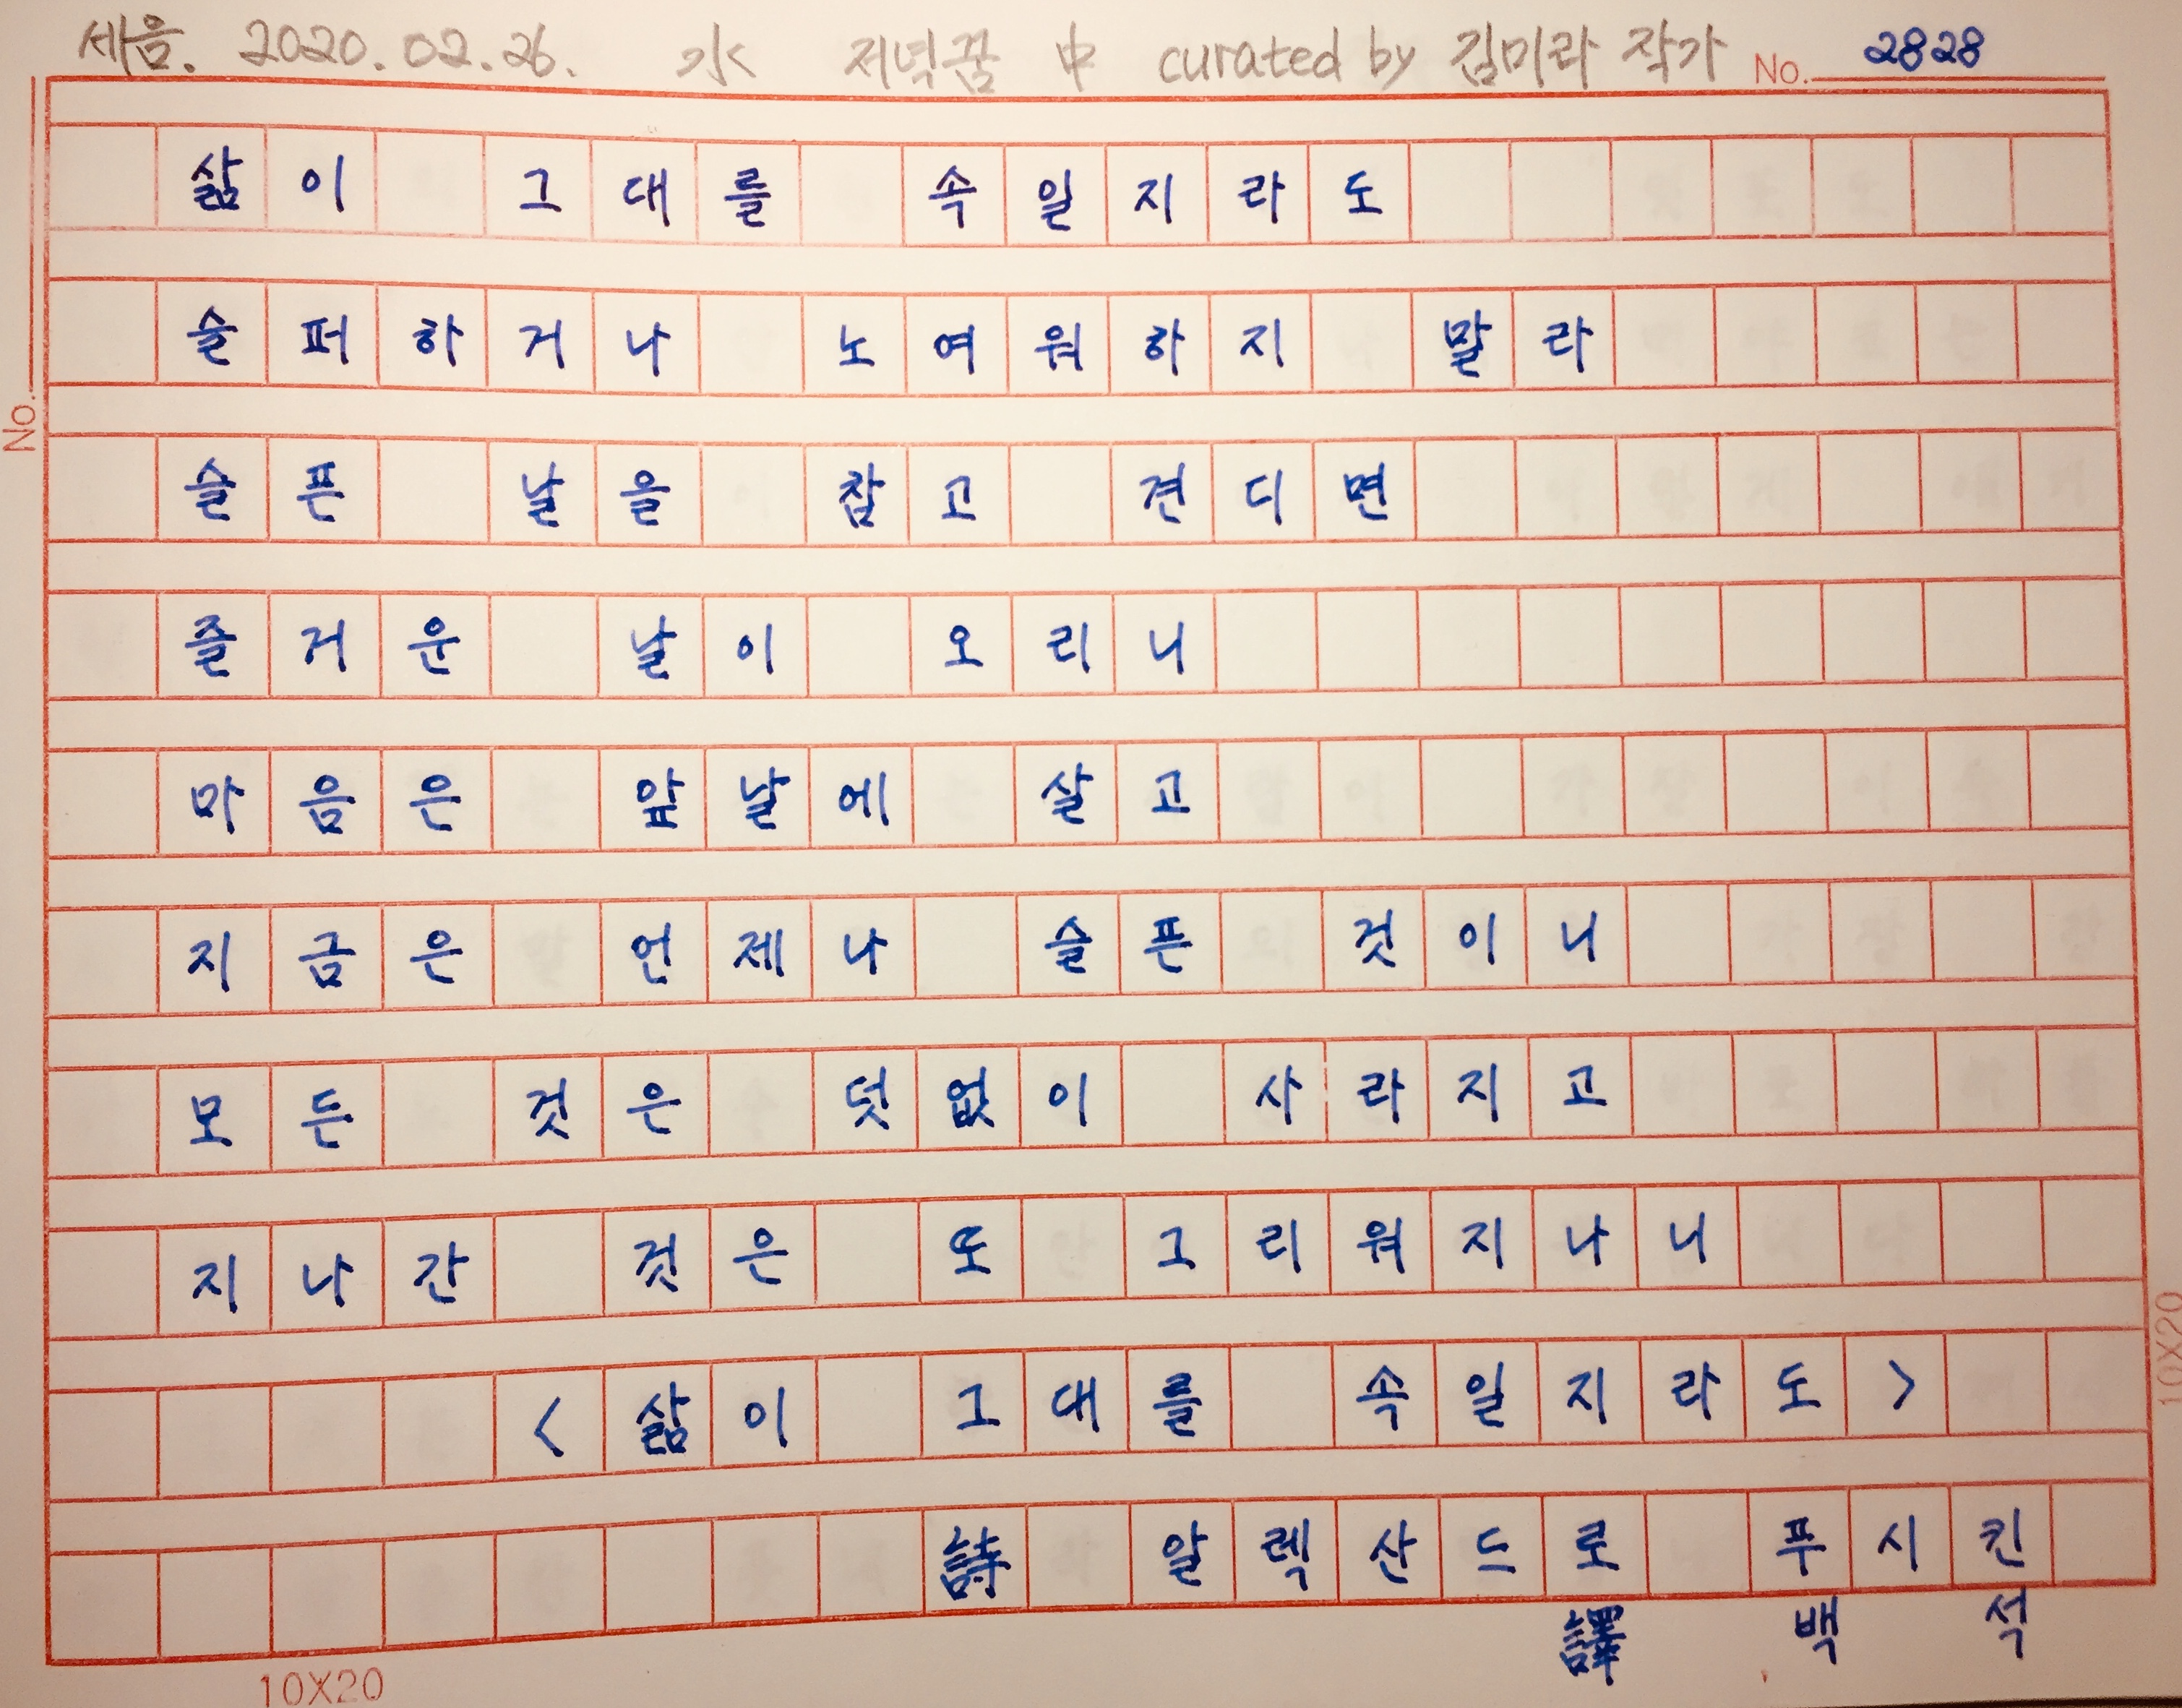 세음. 2020. 02. 26. 水 저녁꿈 中 curated by 김미라 작가 No. 2828
No.
삶이 그대를 속일지라도
슬퍼하거나 노여워하지 말라
슬픈 날을 참고 견디면
즐거운 날이 오리니
마음은 앞날에 살고
지금은 언제나 슬픈 것이니
모든 것은 덧없이 사라지고
지나간 것은 또 그리워지나니
<삶이 그대를 속일지라도>
詩 알렉산드로 푸시킨
譯 백석
10X20
10X20